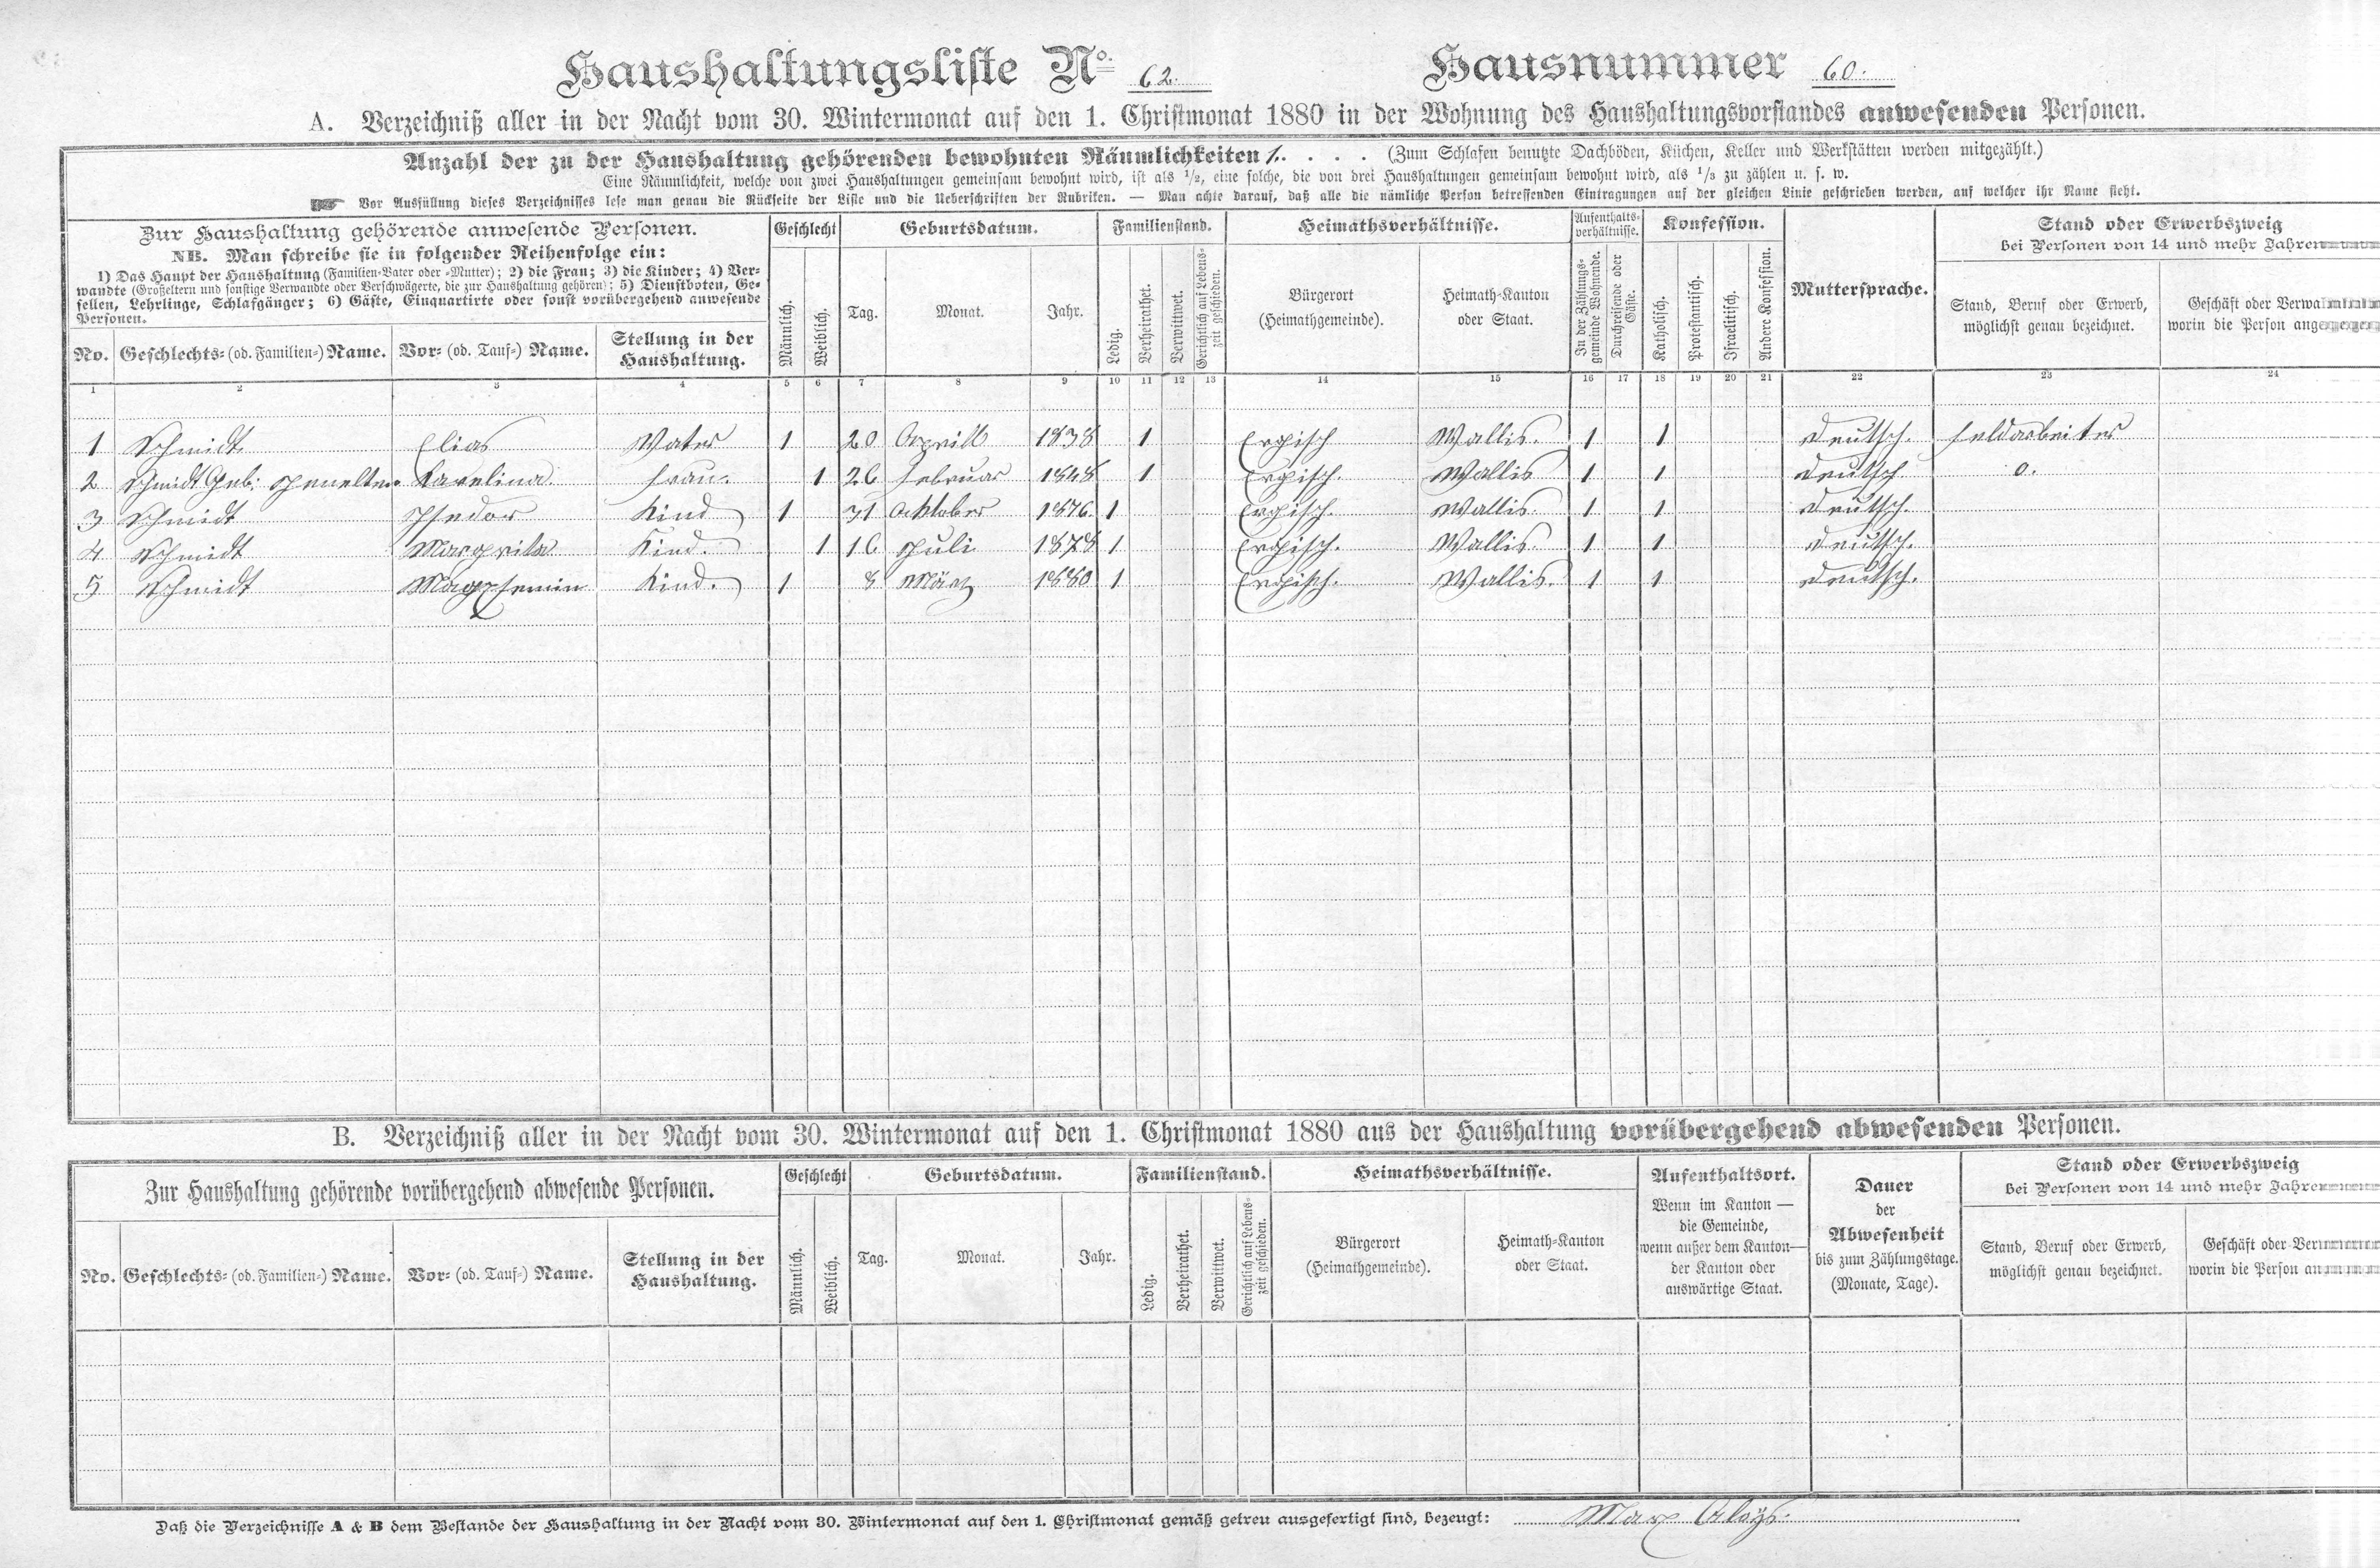 Haushaltungsliste No. 62. Hausnummer 60.
A. Verzeichniß aller in der Nacht vom 30. Wintermonat auf den 1. Christmonat 1880 in der Wohnung des Haushaltungsvorstandes anwesenden Personen.
Anzahl der zu der Haushaltung gehörenden bewohnten Räumlichkeiten 1. . . . . (Zum Schlafen benutzte Dachböden, Küchen, Keller und Werkstätten werden mitgezählt.)
Eine Räumlichkeit, welche von zwei Haushaltungen gemeinsam bewohnt wird, ist als 1/2, eine solche, die von drei Haushaltungen gemeinsam bewohnt wird, als 1/3 zu zählen u. s. w.
☛ Vor Ausfüllung dieses Verzeichnisses lese man genau die Rückseite der Liste und die Ueberschriften der Rubriken. — Man achte darauf, daß alle die nämliche Person betreffenden Eintragungen auf der gleichen Linie geschrieben werden, auf welcher ihr Name steht.
Zur Haushaltung gehörende anwesende Personen.
NB. Man schreibe sie in folgender Reihenfolge ein:
1) Das Haupt der Haushaltung (Familien-Vater oder -Mutter); 2) die Frau; 3) die Kinder; 4) Ver-
wandte (Großeltern und sonstige Verwandte oder Verschwägerte, die zur Haushaltung gehören); 5) Dienstboten, Ge-
sellen, Lehrlinge, Schlafgänger; 6) Gäste, Einquartirte oder sonst vorübergehend anwesende
Personen.
No. Geschlechts- (od. Familien-) Name. Vor- (od. Tauf-) Name. Stellung in der
Haushaltung.
Geschlecht
Männlich. Weiblich.
Geburtsdatum.
Tag. Monat. Jahr.
Familienstand.
Ledig. Verheirathet. Verwittwet. Gerichtlich auf Lebens-
zeit geschieden.
Heimathsverhältnisse.
Bürgerort
(Heimathgemeinde).
Heimath-Kanton
oder Staat.
Aufenthalts-
verhältnisse.
In der Zählungs-
gemeinde Wohnende.
Durchreisende oder
Gäste.
Konfession.
Katholisch. Protestantisch. Israelitisch. Andere Konfession.
Muttersprache.
Stand oder Erwerbszweig
bei Personen von 14 und mehr Jahren
Stand, Beruf oder Erwerb,
möglichst genau bezeichnet.
Geschäft oder Verwal
worin die Person ange
1 2 3 4 5 6 7 8 9 10 11 12 13 14 15 16 17 18 19 20 21 22 23 24
1 Schmidt Elias Vater 1 20 Aprill 1838 1 Ergisch Wallis. 1 1 deutsch. Feldarbeiter
2 Schmidt Geb: Karelina. Frau. 1 26 Februar 1848 1 Ergisch. Wallis 1 1 deutsch 0.
3 Schmidt Isedor Kind 1 31 Acktober 1876. 1 Ergisch. Wallis. 1 1 deutsch.
4 Schmidt Margrita Kind. 1 16 Juli 1878 1 Ergisch. Wallis. 1 1 deutsch.
5 Schmidt Kind. 1 8 März 1880 1 Ergisch. Wallis. 1 1 deutsch.
B. Verzeichniß aller in der Nacht vom 30. Wintermonat auf den 1. Christmonat 1880 aus der Haushaltung vorübergehend abwesenden Personen.
Zur Haushaltung gehörende vorübergehend abwesende Personen.
No. Geschlechts- (od. Familien-) Name. Vor- (od. Tauf-) Name. Stellung in der
Haushaltung.
Geschlecht
Männlich. Weiblich.
Geburtsdatum.
Tag. Monat. Jahr.
Familienstand.
Ledig. Verheirathet. Verwittwet. Gerichtlich auf Lebens-
zeit geschieden.
Heimathsverhältnisse.
Bürgerort
(Heimathgemeinde).
Heimath-Kanton
oder Staat.
Aufenthaltsort.
Wenn im Kanton —
die Gemeinde,
wenn außer dem Kanton—
der Kanton oder
auswärtige Staat.
Dauer
der
Abwesenheit
bis zum Zählungstage.
(Monate, Tage).
Stand oder Erwerbszweig
bei Personen von 14 und mehr Jahren
Stand, Beruf oder Erwerb,
möglichst genau bezeichnet.
Geschäft oder Ver
worin die Person an
Daß die Verzeichnisse A & B dem Bestande der Haushaltung in der Nacht vom 30. Wintermonat auf den 1. Christmonat gemäß getreu ausgefertigt sind, bezeugt: Marx Aloÿs.